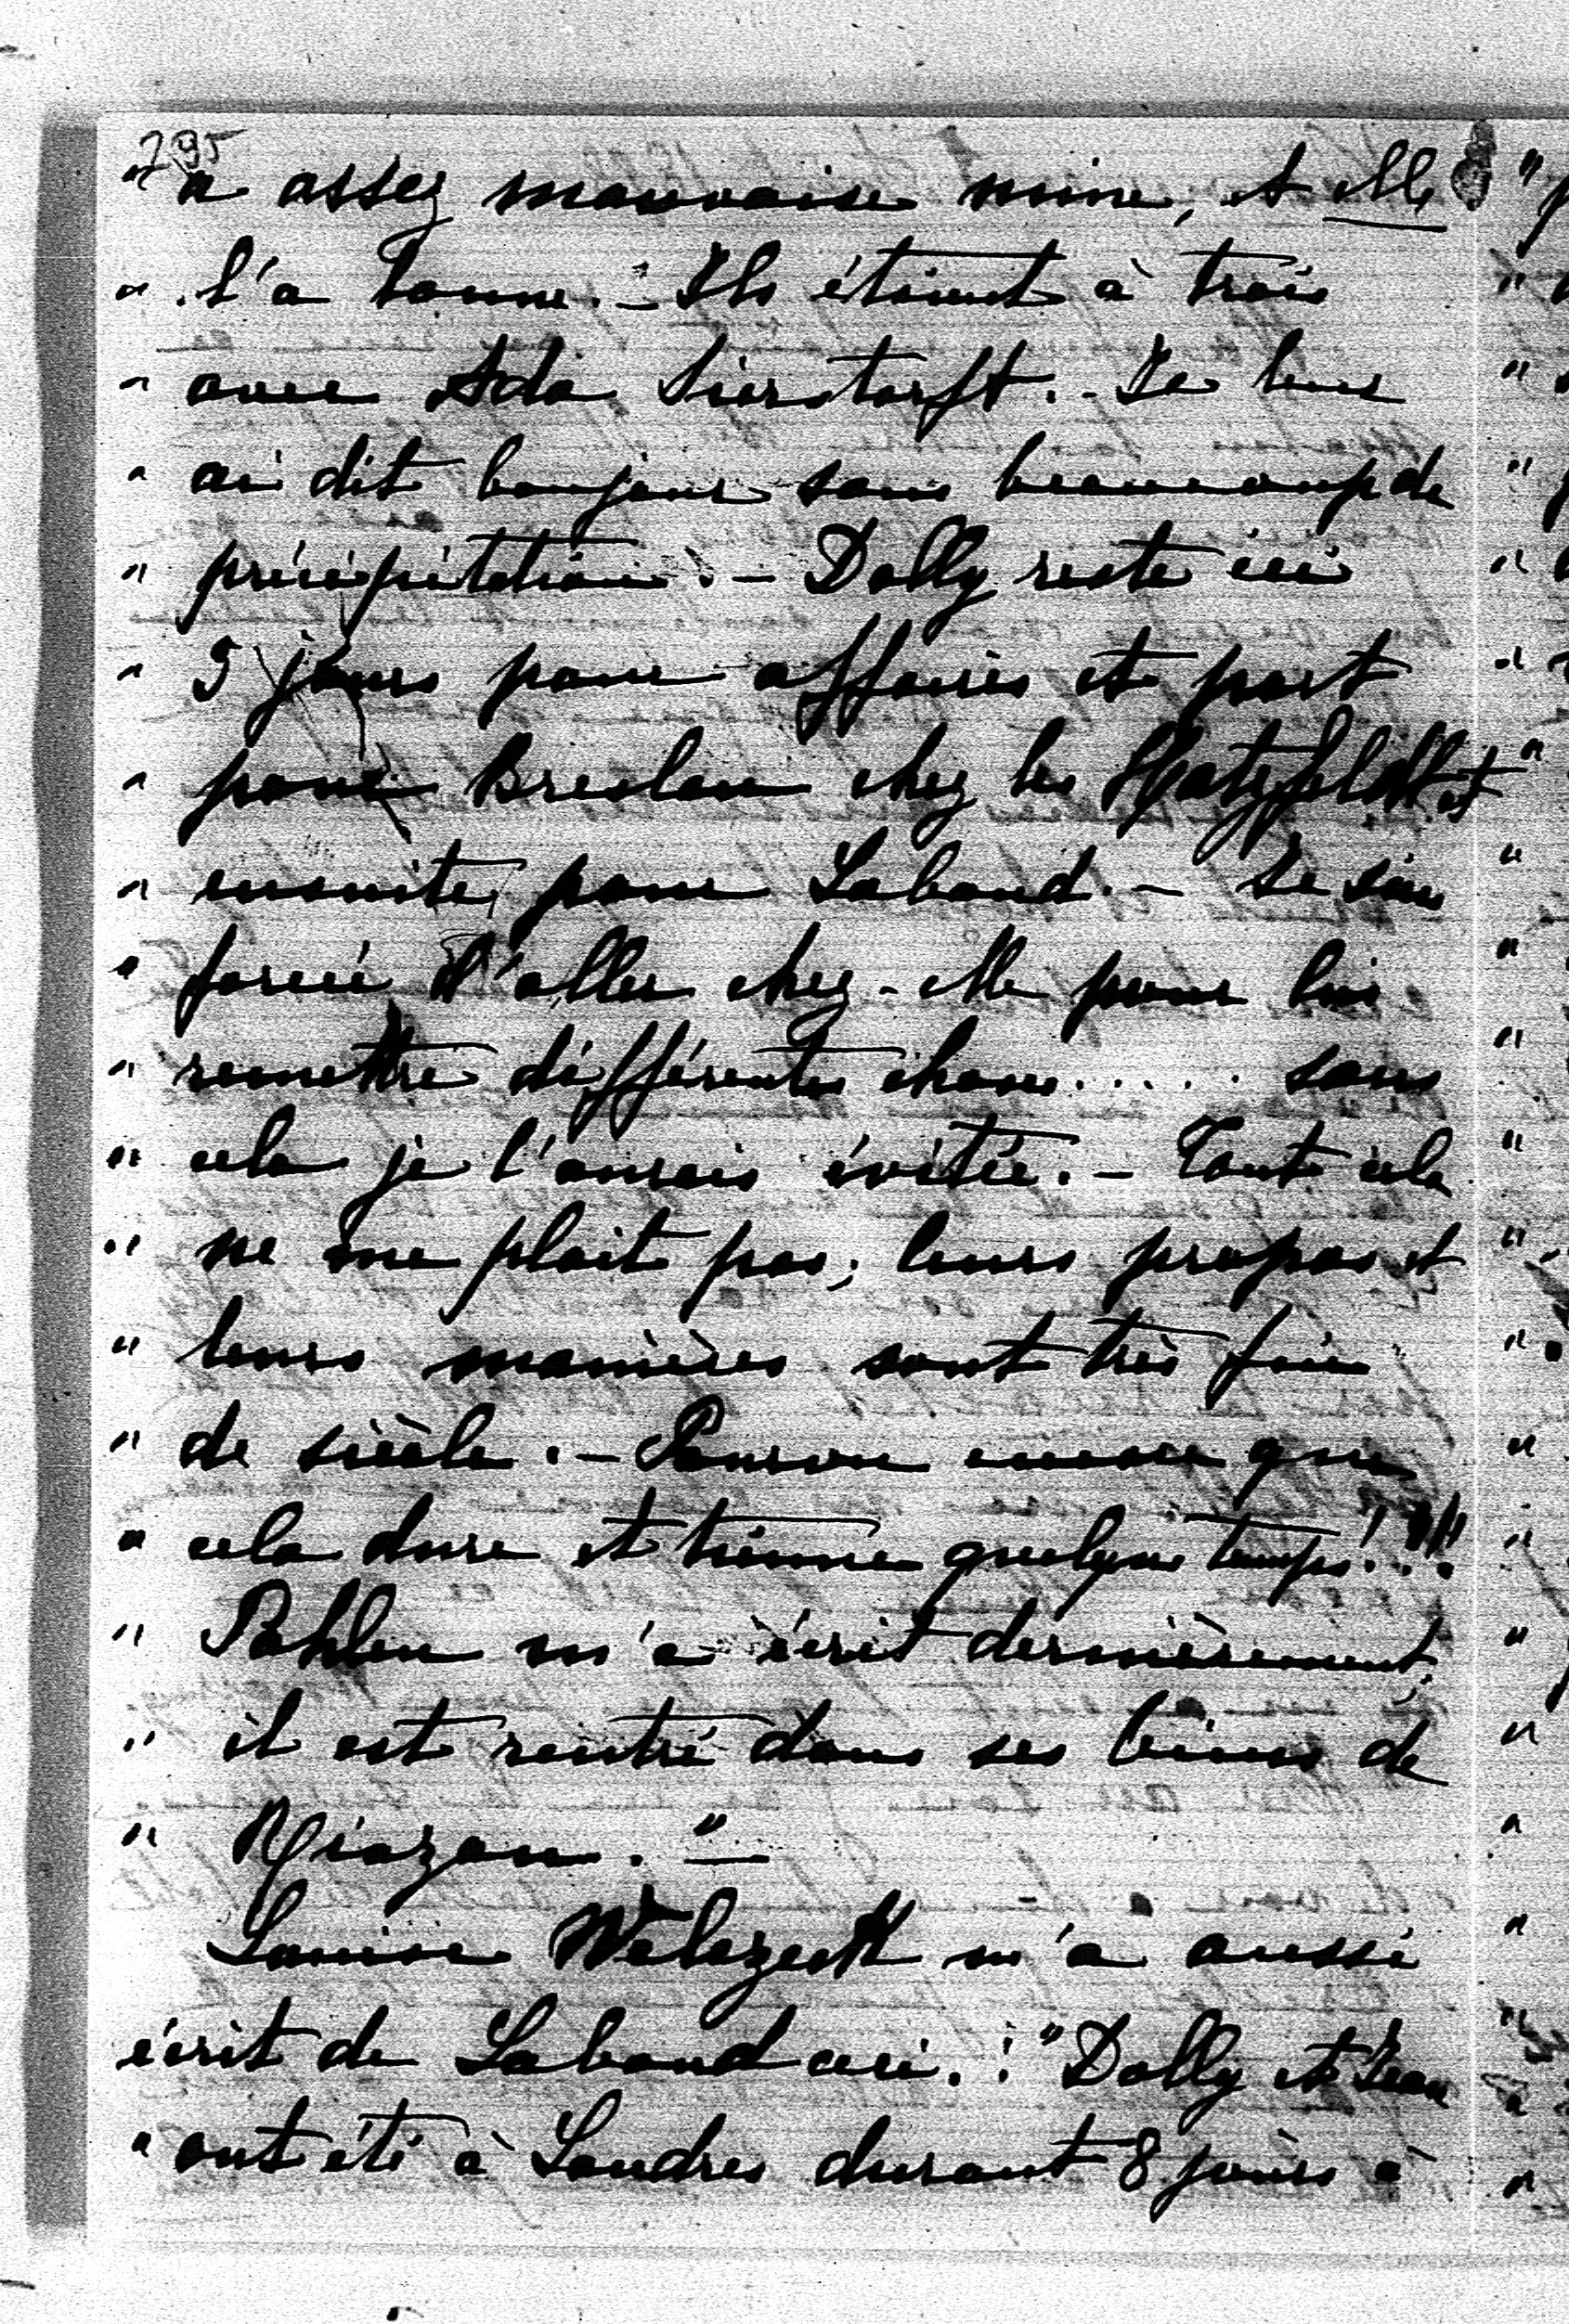 295
" a assez mauvaise mine, et elle
" l'a bonne. – Ils étaient à trois
" avec Ada Sierstorff. – Je leur
" ai dit bonjour sans beaucoup de
" précipitation. – Dolly reste ici
" 5 jours pour affaires et part
" pour Breslau chez les Hatzfeldt et
" ensuite pour Laband. – Je suis
" forcé d'aller chez-elle pour lui
" remettre différentes choses..... sans
" cela je l'aurais évitée. – Tout cela
" ne me plait pas; leurs propos et
" leurs manières sont très fin
" de siècle. – Pourvu encore que
" cela dure et tienne quelque temps!!!
" Pahlen m'a écrit dernièrement,
" il est rentré dans ses biens de
" Riazan. " –
Louise Welczeck m'a aussi
écrit de Laband ceci. : " Dolly et Jean
" ont été à Londres durant 8 jours à